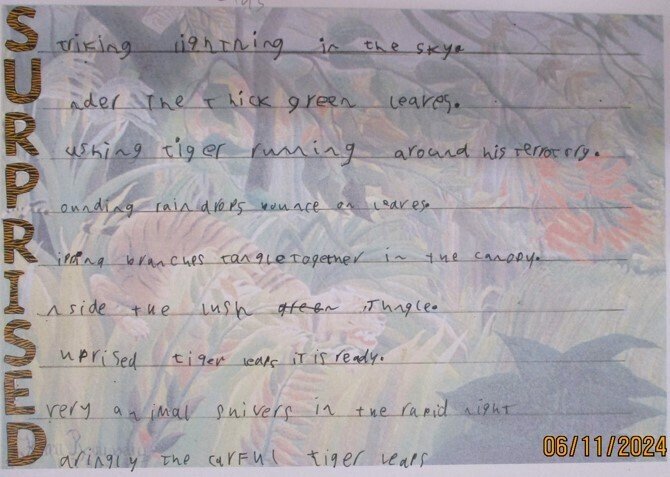 Striking lightning in the sky.
Under The Thick green leaves.
Rushing tiger running around his terrotory.
Pounding raindrops bounce on leaves.
Ripping branches tangle together in the canopy.
Inside the lush green Jungle.
Suprised tiger leaps it is ready.
Every animal shivers in the rapid night
Daringly the carful tiger leaps
06/11/2024